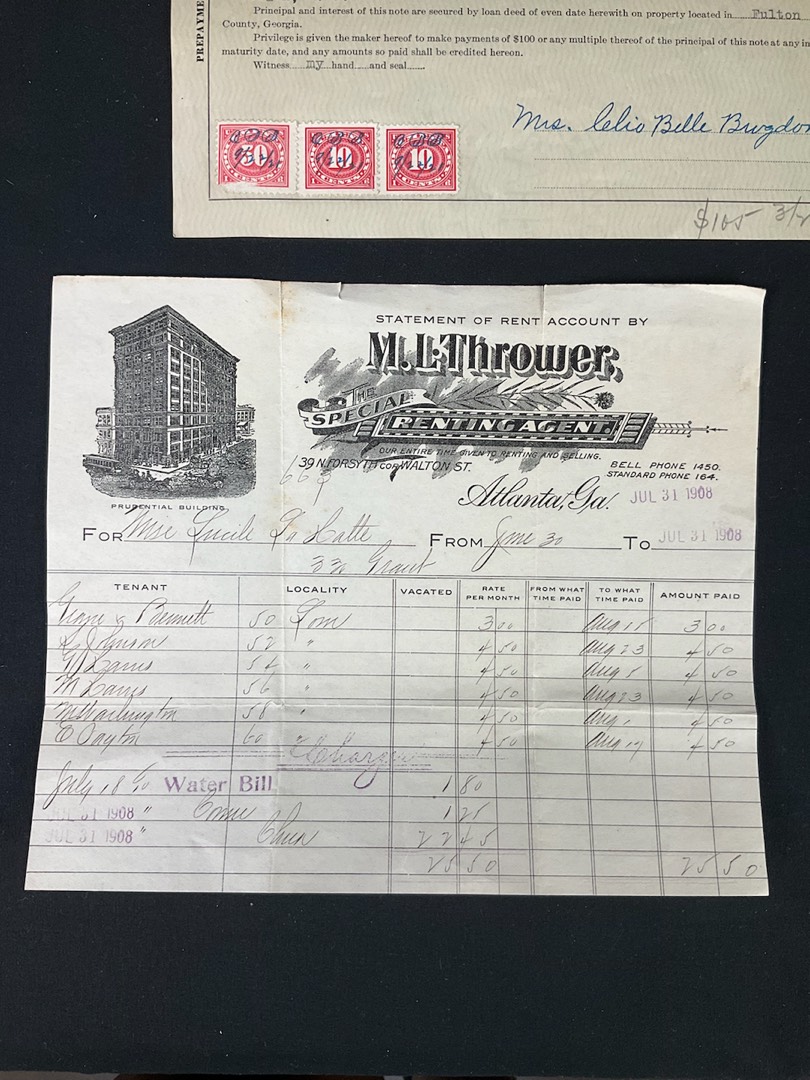 PREPAYME
Principal and interest of this note are secured by loan deed of even date herewith on property located in Fulton
County, Georgia.
Privilege is given the maker hereof to make payments of $100 or any multiple thereof of the principal of this note at any in
maturity date, and any amounts so paid shall be credited hereon.
Witness my hand and seal
10 10 10
CENTS CENTS CENTS
C.B.B. C.B.B. C.B.B.
Mrs. Clio Belle Brogdon
$165
STATEMENT OF RENT ACCOUNT BY
M. L. Thrower,
THE SPECIAL
RENTING AGENT.
OUR ENTIRE TIME GIVEN TO RENTING AND SELLING.
39 N. FORSYTH COR WALTON ST.
BELL PHONE 1450.
STANDARD PHONE 164.
PRUDENTIAL BUILDING
Atlanta, Ga. JUL 31 1908
FOR Miss Lucile La Hatte FROM June 30 TO JUL 31 1908
330 Grant
TENANT LOCALITY VACATED RATE PER MONTH FROM WHAT TIME PAID TO WHAT TIME PAID AMOUNT PAID
Bennett 50 3 00 Aug 15 3 00
52 " 4 50 Aug 23 4 50
54 " 4 50 Aug 5 4 50
M 56 " 4 50 Aug 23 4 50
58 " 4 50 Aug 1 4 50
E 60 " 4 50 Aug 17 4 50
Charges
July 18 Water Bill 1 80
JUL 31 1908 " 1 25
JUL 31 1908 " 22 45
25 50 25 50